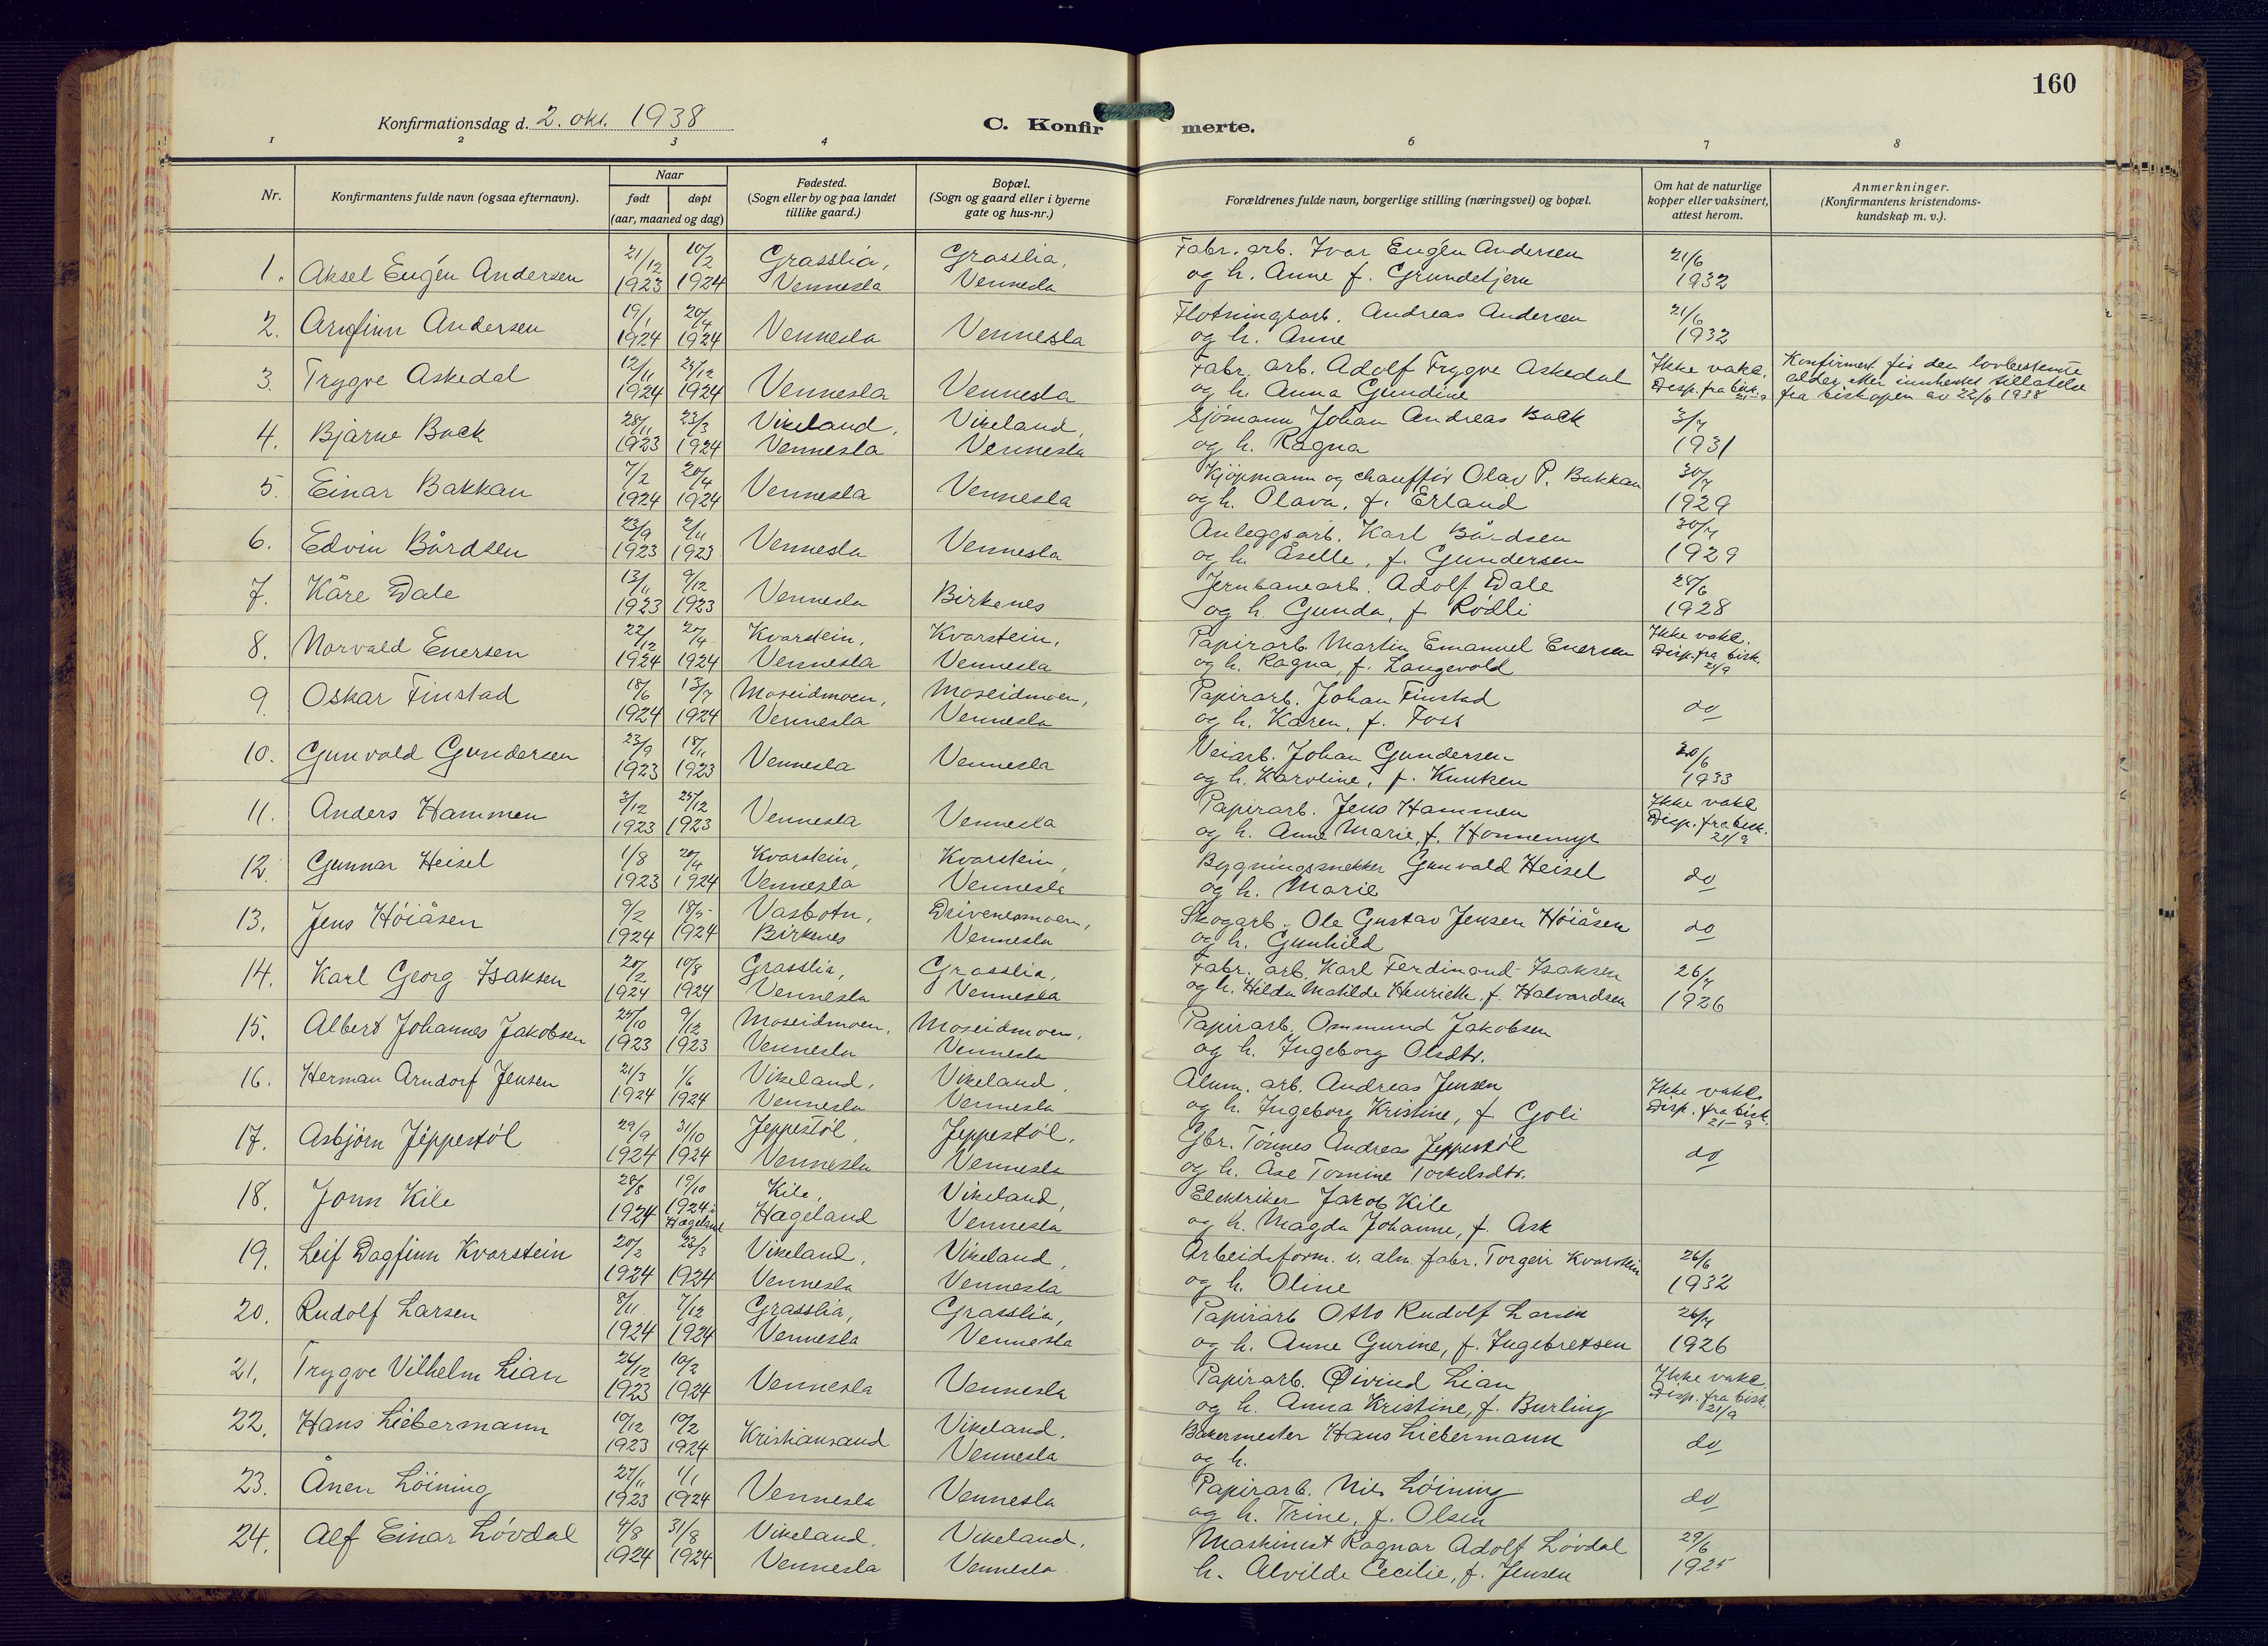 160
Konfirmationsdag d. 2. okt. 1938
C. Konfirmerte.
1 2 3 4 6 7 8
Nr.
Konfirmantens fulde navn (ogsaa efternavn).
Naar
født døpt
(aar, maaned og dag)
Fødested.
(Sogn eller by og paa landet
tillike gaard.)
Bopæl.
(Sogn og gaard eller i byerne
gate og hus-nr.)
Forældrenes fulde navn, borgerlige stilling (næringsvei) og bopæl.
Om hat de naturlige
kopper eller vaksinert,
attest herom.
Anmerkninger.
(Konfirmantens kristendoms-
kundskap m. v.).
21/12 10/2 Grasslia, Grasslia, Fabr. arb. Ivar Eugén Andersen 21/6
1. Aksel Eugén Andersen 1923 1924 Vennesla Vennesla og h. Anne f. Grundetjern 1932
19/1 20/4 Flotningsarb. Andreas Andersen 21/6
2. Arnfinn Andersen 1924 1924 Vennesla Vennesla og h. Anne 1932
12/11 Fabr. arb. Adolf Trygve Askedal Ikke vaks. Konfirmert før den lovbestemte
3. Trygve Askedal 1924 1924 Vennesla Vennesla og h. Anna Gundine Disp. fra bisk. 21-9 alder etter innhentet tillatelse
fra biskopen av 22/6 1938
28/11 23/3 Vikeland, Vikeland, Sjømann Johan Andreas Back 3/7
4. Bjarne Back 1923 1924 Vennesla Vennesla og h. Ragna 1931
7/2 20/4 Kjøpmann og chauffør Olav P. Bakkan 30/7
5. Einar Bakkan 1924 1924 Vennesla Vennesla og h. Olava, f. Erland 1929
23/9 2/11 Anleggsarb. Karl Bårdsen 30/7
6. Edvin Bårdsen 1923 1923 Vennesla Vennesla og h. Åselle, f. Gundersen 1929
13/11 9/12 Jernbanearb. Adolf Dale
7. Kåre Dale 1923 1923 Vennesla Birkenes og h. Gunda, f. Rødli 1928
22/12 20/4 Kvarstein, Kvarstein, Papirarb. Martin Emanuel Enersen Ikke vaks.
8. Norvald Enersen 1924 1924 Vennesla Vennesla og h. Ragna, f. Langevold Disp. fra bisk. 21/9
18/6 13/7 Moseidmoen, Moseidmoen, Papirarb. Johan Finstad
9. Oskar Finstad 1924 1924 Vennesla Vennesla og h. Karen, f. Foss do
23/9 18/11 Veiarb. Johan Gundersen 20/6
10. Gunvald Gundersen 1923 1923 Vennesla Vennesla og h. Karoline, f. Knutsen 1933
3/12 25/12 Papirarb. Jens Hammen Ikke vaks
11. Anders Hammen 1923 1923 Vennesla Vennesla og h. Anne Marie, f. Honnemyr Disp. fra bisk. 21/9
1/8 20/4 Kvarstein, Kvarstein, Bygningssnekker Gunvald Heisel
12. Gunnar Heisel 1923 1924 Vennesla Vennesla og h. Marie do
9/2 18/5 Vasbotn, Drivenesmoen, Skogarb. Ole Gustav Jensen Høiåsen
13. Jens Høiåsen 1924 1924 Birkenes Vennesla og h. Gunhild do
20/2 10/8 Grasslia, Grasslia, Fabr. arb. Karl Ferdinand Isaksen 26/7
14. Karl Georg Isaksen 1924 1924 Vennesla Vennesla og h. Hilda Matilde Henriette f. Halvardsen 1926
25/10 9/12 Moseidmoen, Moseidmoen, Papirarb. Ommund Jakobsen
15. Albert Johannes Jakobsen 1923 1923 Vennesla Vennesla og h. Ingeborg Olsdtr.
21/3 1/6 Vikeland, Vikeland, Alum. arb. Andreas Jensen Ikke vaks.
16. Herman Arndorf Jensen 1924 1924 Vennesla Vennesla og h. Ingeborg Kristine, f. Goli Disp. fra bisk. 21-9
29/9 31/10 Jeppestøl, Jeppestøl, Gbr. Tønnes Andreas Jeppestøl
17. Asbjørn Jeppestøl 1924 1924 Vennesla Vennesla og h. Åse Tomine Torkelsdtr. do
28/8 19/10 Kile, Vikeland, Elektriker Jakob Kile
18. Jonn Kile 1924 1924 i Hægeland Hægeland Vennesla og h. Magda Johanne, f. Ask
20/2 23/3 Vikeland, Vikeland, Arbeidsform. v. alm. fabr. Torgeir Kvarstein 26/6
19. Leif Dagfinn Kvarstein 1924 1924 Vennesla Vennesla og h. Oline 1932
8/11 7/12 Grasslia, Grasslia, Papirarb Otto Rudolf Larsen 26/7
20. Rudolf Larsen 1924 1924 Vennesla Vennesla og h. Anne Gurine, f. Ingebretsen 1926
26/12 10/2 Papirarb. Øivind Lian Ikke vaks.
21. Trygve Vilhelm Lian 1923 1924 Vennesla Vennesla og h. Anna Kristine, f. Burling Disp. fra bisk. 21/9
10/12 10/2 Vikeland, Bakermester Hans Liebermann
22. Hans Liebermann 1923 1924 Kristiansand Vennesla og h. do
27/11 1/1 Papirarb. Nils Løining
23. Ånen Løining 1923 1924 Vennesla Vennesla og h. Trine, f. Olsen do
4/8 31/8 Vikeland, Vikeland, Maskinist Ragnar Adolf Løvdal 29/6
24. Alf Einar Løvdal 1924 1924 Vennesla Vennesla h. Alvilde Cecilie, f. Jensen 1925